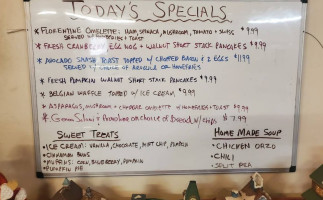 TODAY'S SPECIALS
* FLORENTINE OMELETTE: HAM, SPINACH, MUSHROOM, TOMATO + SWISS $9.99
SERVED W/ HOMEFRIES + TOAST
* FRESH CRANBERRY EGG NOG + WALNUT SHORT STACK PANCAKES $9.99
* AVOCADO SMASH TOAST TOPPED W/ BACON & 2 EGGS $11.99
SERVED W/ CHOICE OF ARUGULA OR HOMEFRIES
* FRESH PUMPKIN WALNUT SHORT STACK PANCAKES $9.99
* BELGIAN WAFFLE TOPPED W/ ICE CREAM $9.99
* ASPARAGUS, MUSHROOM + CHEDDAR OMELETTE W/ HOMEFRIES + TOAST
on choice of Bread w/ chips $7.99
SWEET TREATS
* ICE CREAM: VANILLA, CHOCOLATE, MINT CHIP, PUMPKIN
* CINNAMON BUNS
* MUFFINS: CORN, BLUEBERRY, PUMPKIN
* PUMPKIN PIE
HOME MADE SOUP
* CHICKEN ORZO
* CHILI
* SPLIT PEA